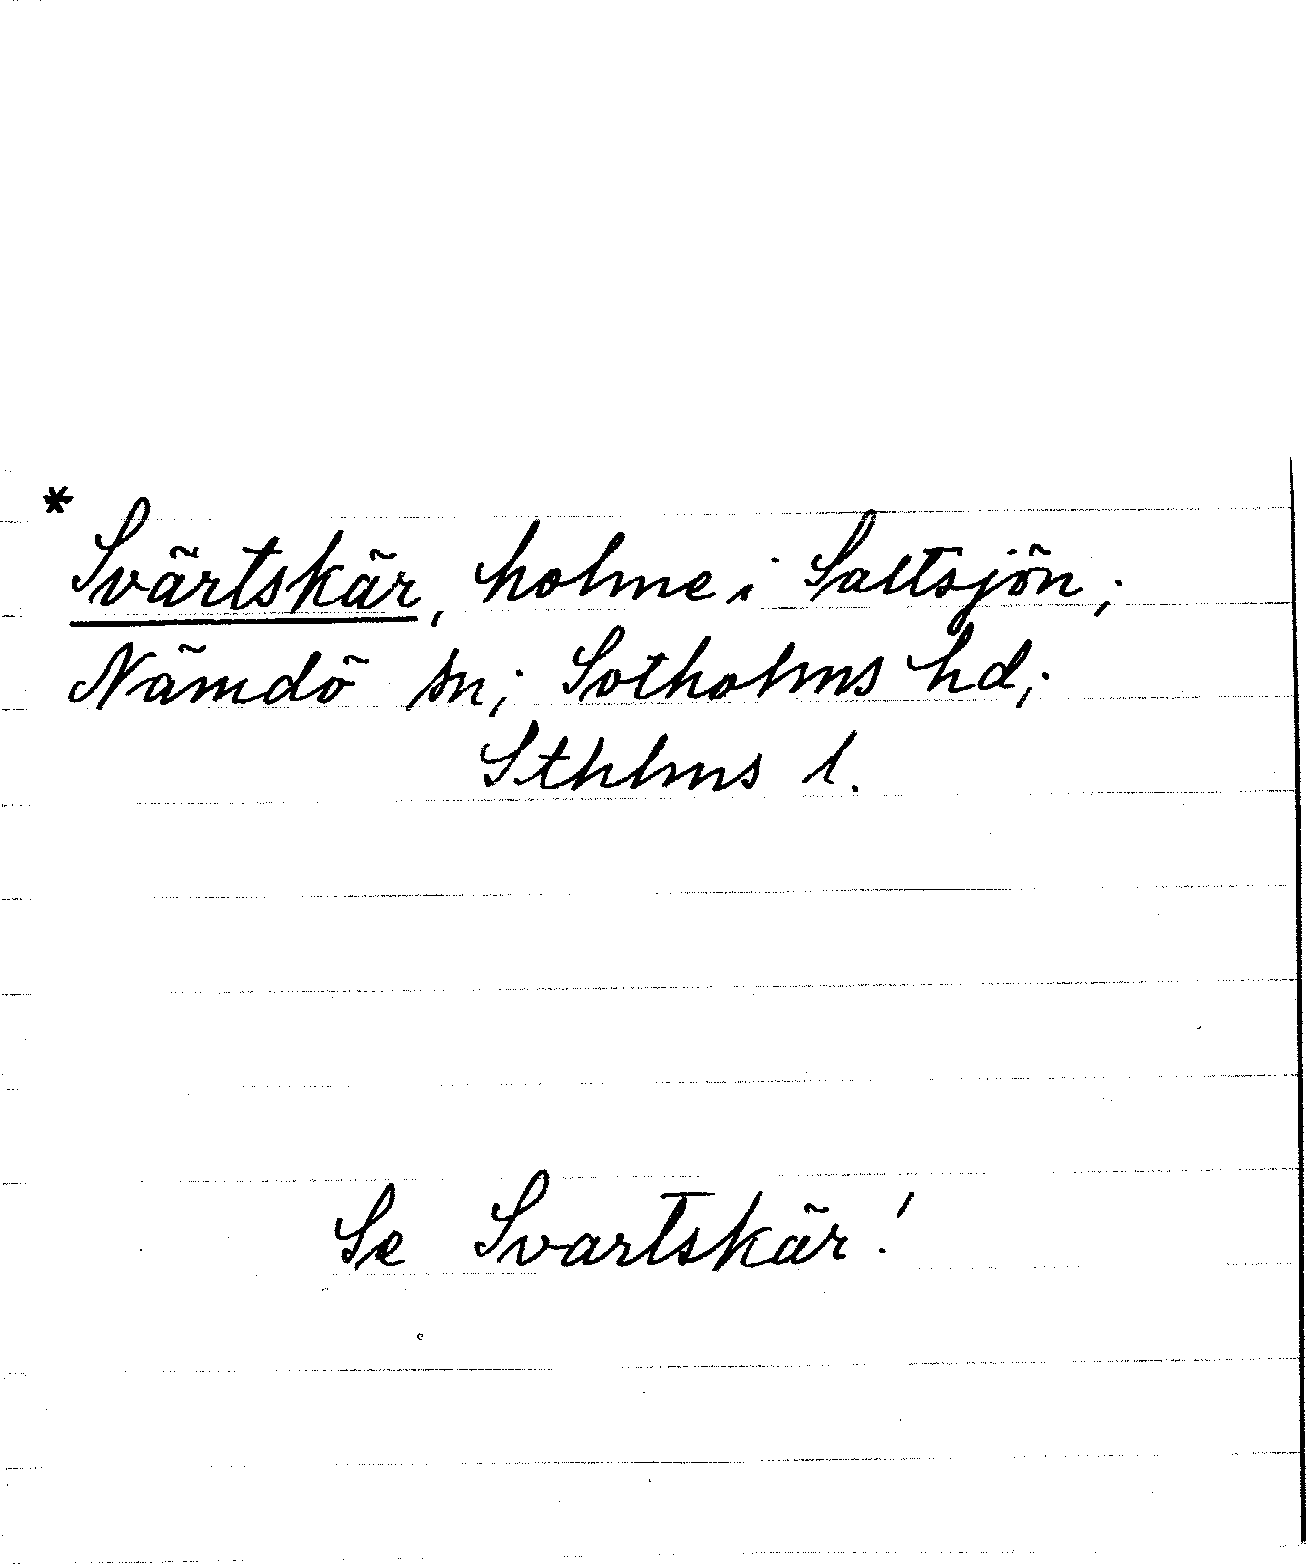 * Svärtskär, holme i Saltsjön;
Nämdö sn; Sotholms hd;
Sthlms l.
Se Svartskär!